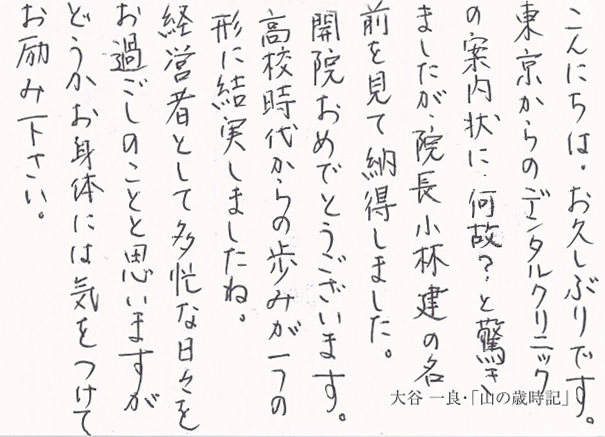 こんにちは。お久しぶりです。
東京からのデンタルクリニック
の案内状に、何故?と驚き
ましたが、院長小林建の名
前を見て納得しました。
開院おめでとうございます。
高校時代からの歩みが一つの
形に結実しましたね。
経営者として多忙な日々を
お過ごしのことと思いますが
どうかお身体には気をつけて
お励み下さい。
大谷 一良・「山の歳時記」